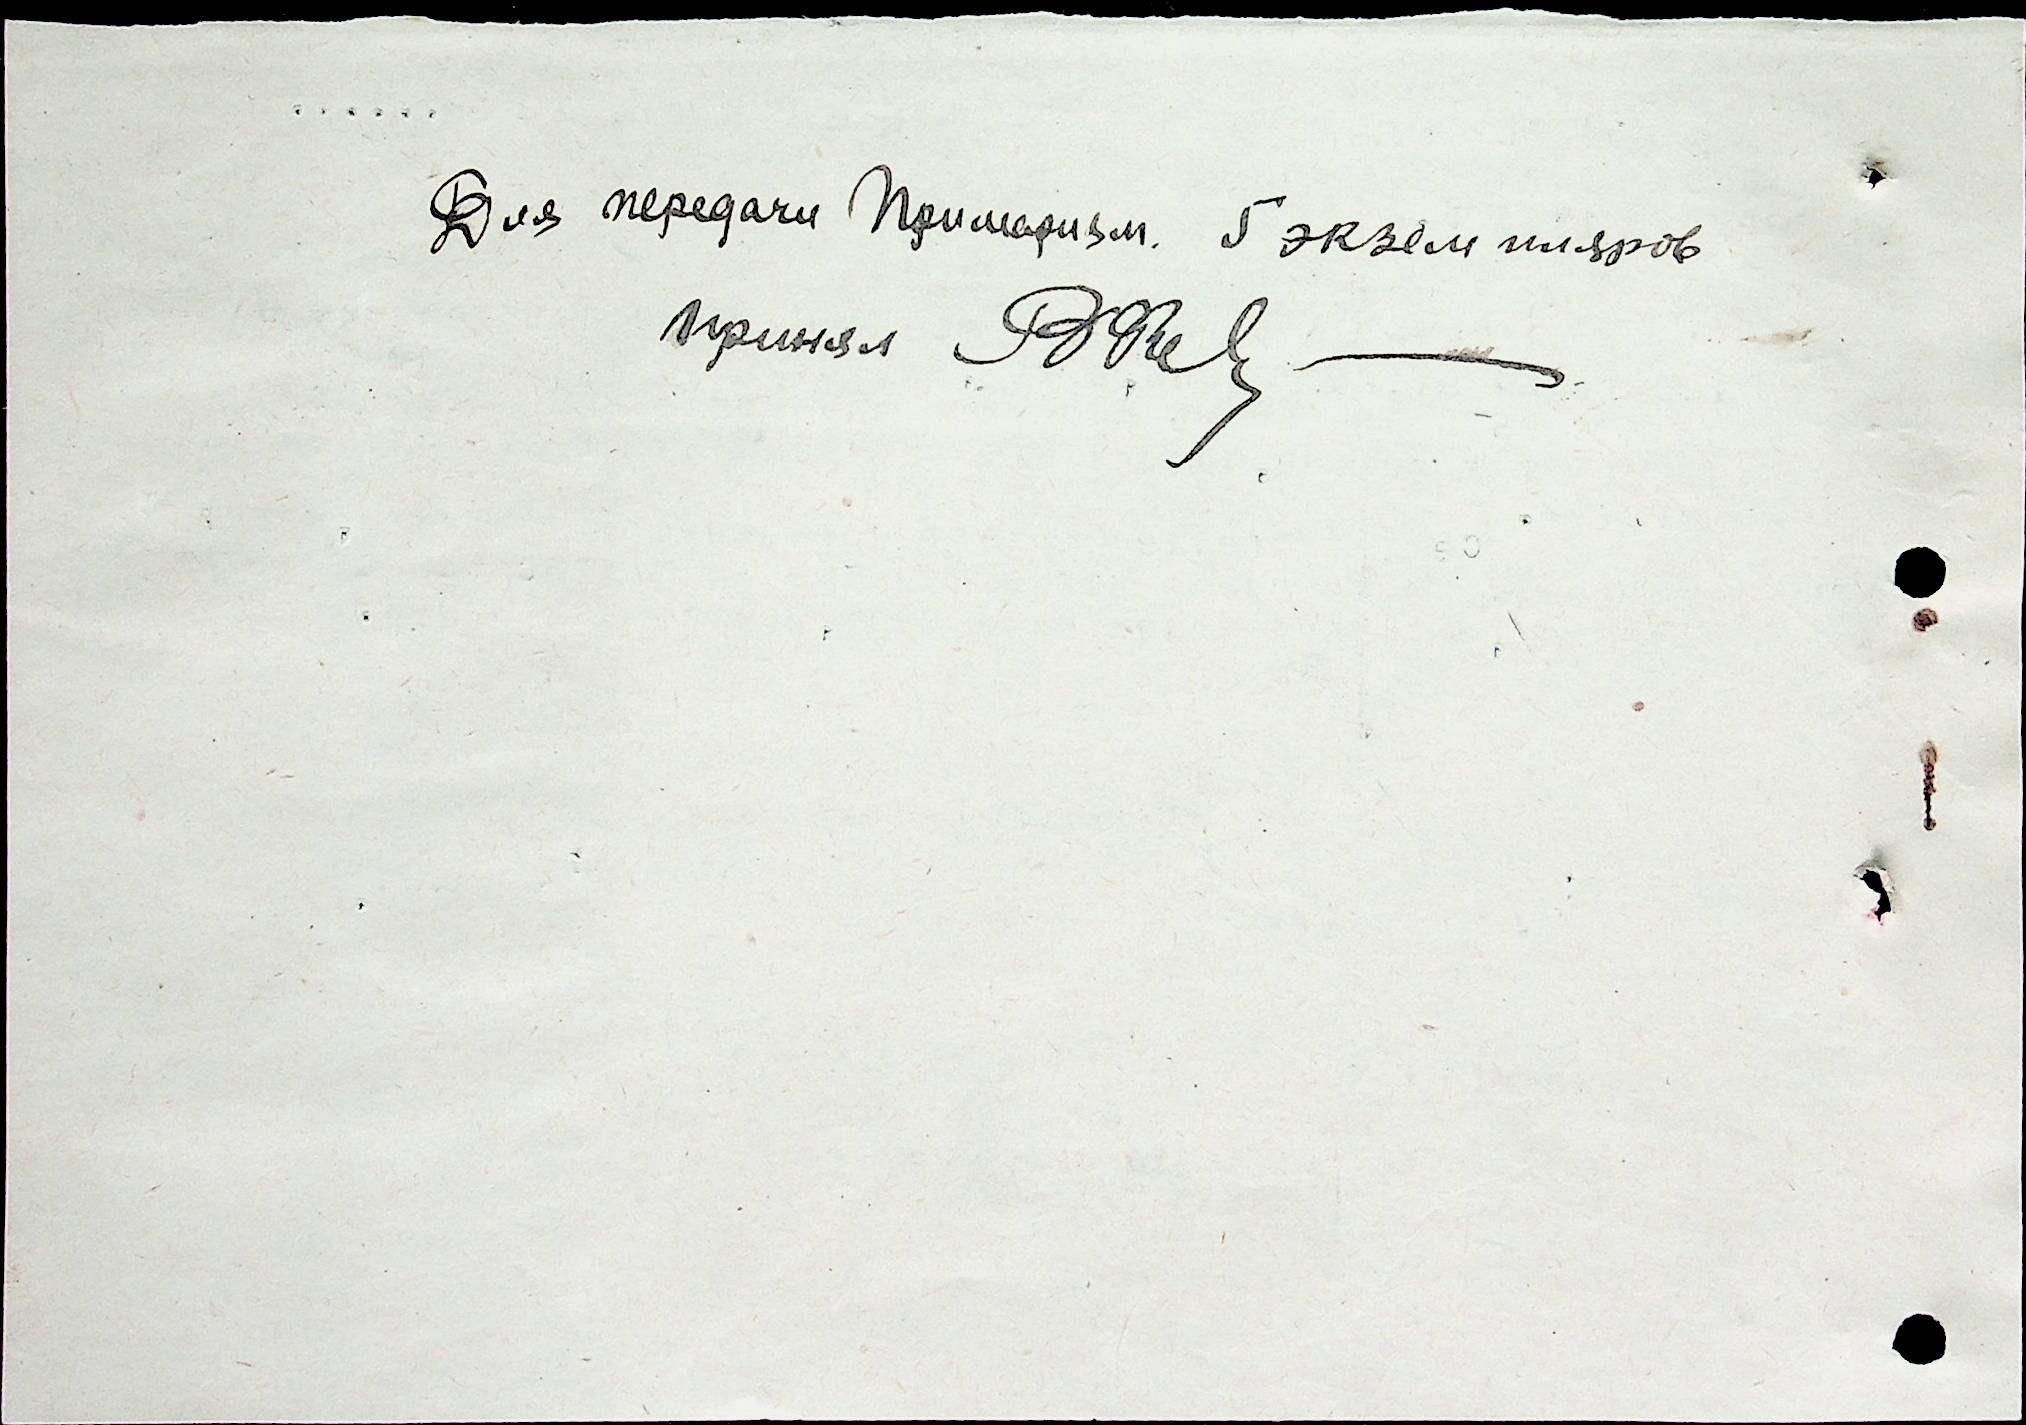 Для передачи Примариям. 5 экземпляров
принял